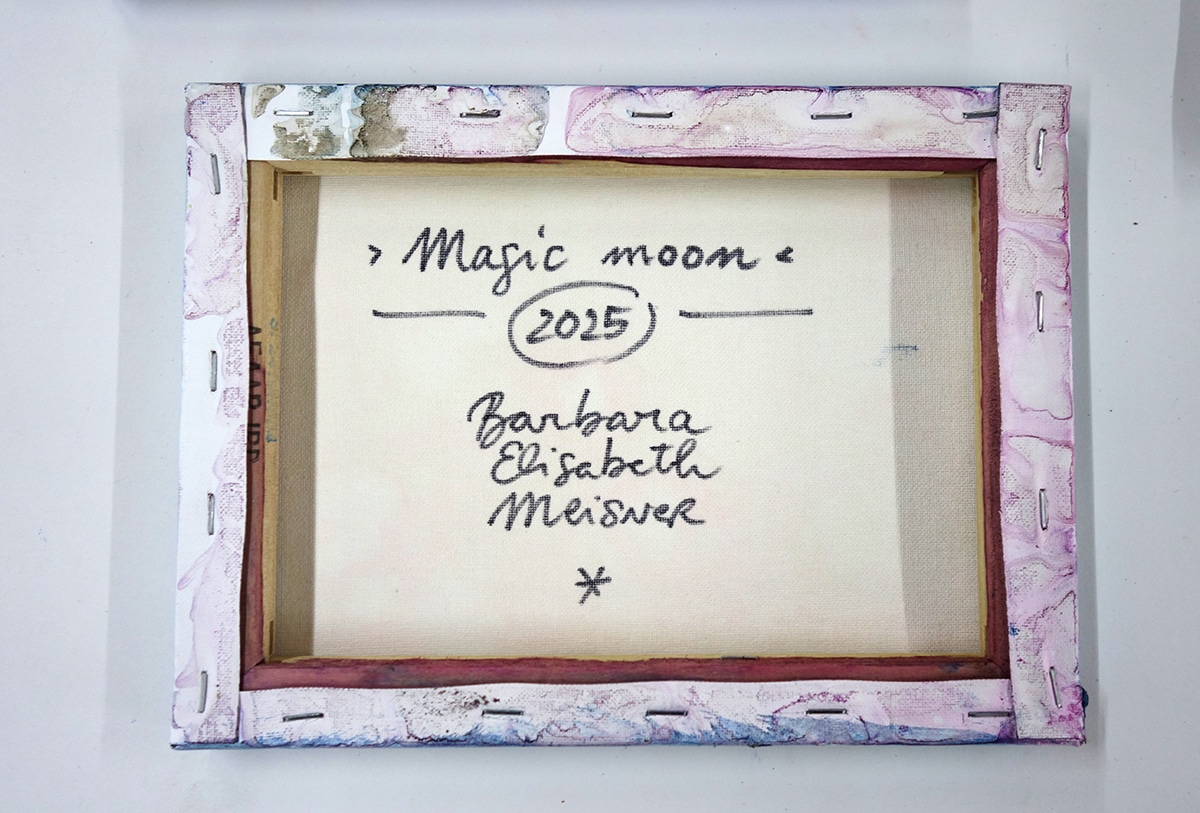 › Magic moon ‹
2025
Barbara
Elisabeth
Meisner
*